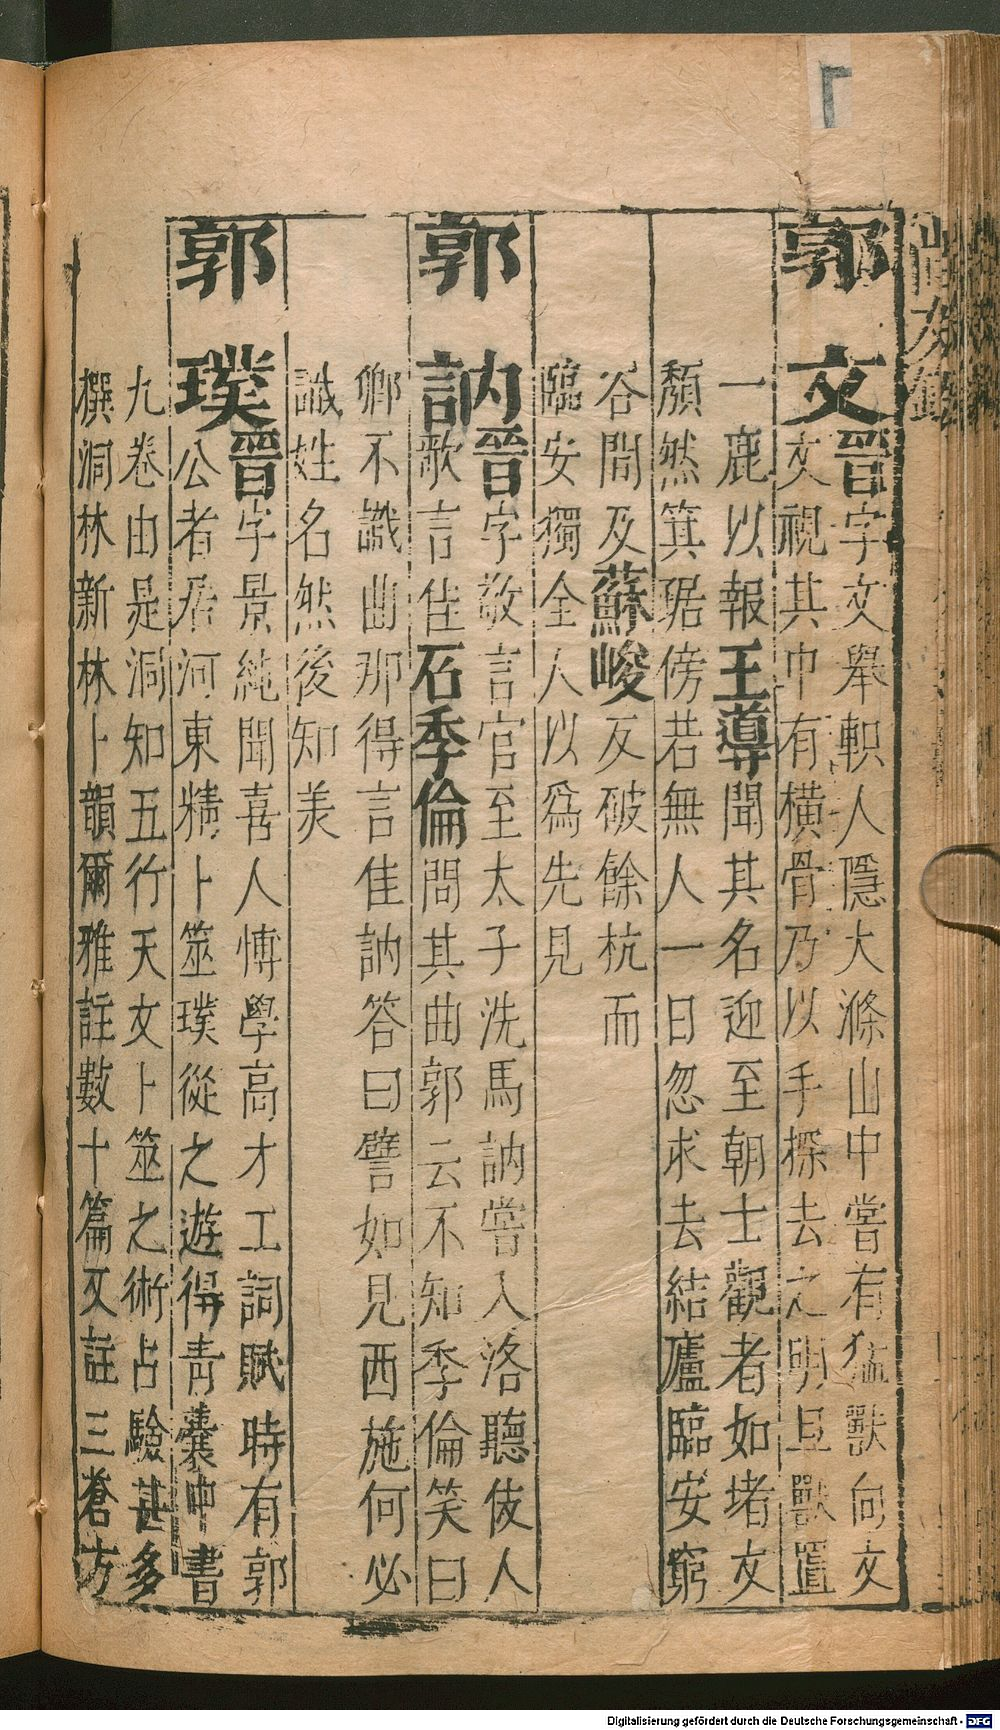 郭文晉字文舉軹人隱大滌山中嘗有猛獸向文
文視其巾有橫骨乃以手探去之明旦獸置
一鹿以報王導聞其名迎至朝士觀者如堵文
頹然箕踞傍若無人一日忽求去結廬臨安窮
谷間及蘇峻反破餘杭而
臨安獨全人以爲先見
郭訥晉字敬言官至太子洗馬訥嘗入洛聽伎人
歌言佳石季倫問其曲郭云不知季倫笑曰
卿不識曲那得言佳訥答曰譬如見西施何必
識姓名然後知美
郭璞晉字景純聞喜人博學高才工詞賦時有郭
公者居河東精卜筮璞從之遊得青囊中書
九卷由是洞知五行天文卜筮之術占驗甚多
撰洞林新林卜韻爾雅註數十篇又註三蒼方
Digitalisierung gefördert durch die Deutsche Forschungsgemeinschaft - DFG